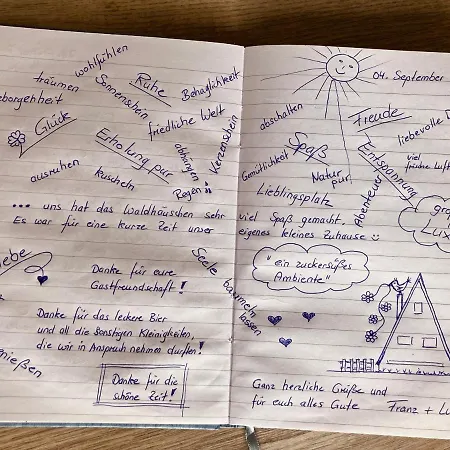 wohlfühlen
träumen
Sonnenschein
Ruhe
Behaglichkeit
eborgenheit
Glück
friedliche Welt
Erholung pur
abhängen
Kerzenschein
ausruhen
kuscheln
Regen
... uns hat das Waldhäuschen sehr
Es war für eine kurze Zeit unser
iebe
Danke für eure
Gastfreundschaft!
Danke für das leckere Bier
und all die sonstigen Kleinigkeiten,
die wir in Anspruch nehmen durften!
nießen
Danke für die
schöne Zeit!
Seele baumeln
lassen
04. September
abschalten
Freude
liebevolle
Spaß
Gemütlichkeit
Entspannung
viel
frische Luft
Natur
pur
Lieblingsplatz
Abenteuer
viel Spaß gemacht.
eigenes kleines Zuhause
"ein zuckersüßes
Ambiente"
Ganz herzliche Grüße und
für euch alles Gute
Franz + Lu